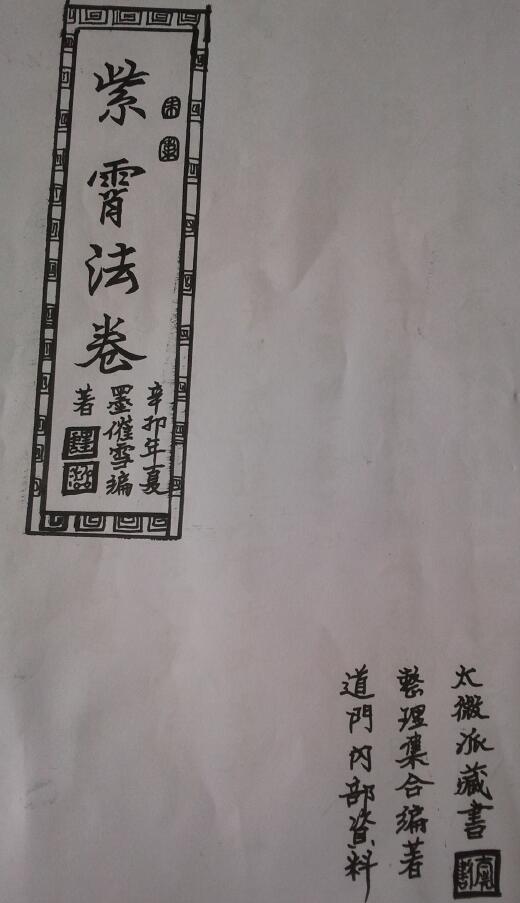 紫霄法卷
辛卯年夏
墨催雪編
著
太微派藏書
整理集合編著
道門内部資料